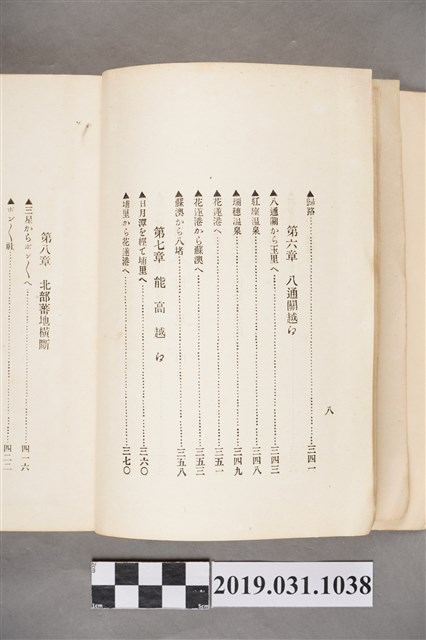 八
▲歸路…………三四一
第六章 八通關越ゆ
▲八通關から玉里へ…………三四三
▲紅座溫泉…………三四八
▲瑞穗溫泉…………三四九
▲花蓮港へ…………三五一
▲花蓮港から蘇澳へ…………三五三
▲蘇澳から八堵…………三五八
第七章 能高越ゆ
▲日月潭を經て埔里へ…………三六〇
▲埔里から花蓮港へ…………三七〇
第八章 北部蕃地橫斷
▲三星からボン〱へ…………四一六
▲ボン〱社…………四二二
2019.031.1038
1cm
5cm